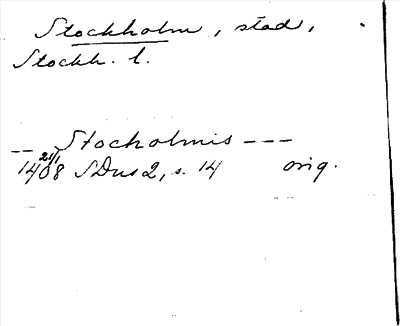 Stockholm, stad,
Stockh. l.
-- Stocholmis ---
1408 21/1 SDns 2, s. 14 orig.